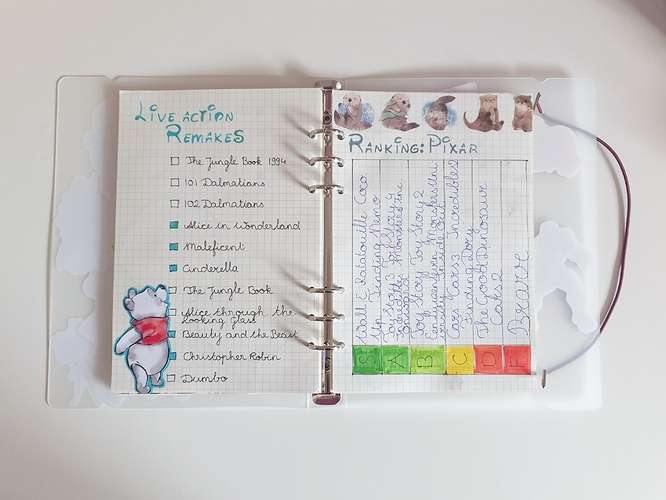 LIVE ACTION
REMAKES
The Jungle Book 1994
101 Dalmatians
102 Dalmatians
Alice in Wonderland
Maleficent
Cinderella
The Jungle Book
Alice through the
Looking Glass
Beauty and the Beast
Christopher Robin
Dumbo
RANKING: PIXAR
Wall E Ratatouille Coco
Up Finding Nemo
Toy Story 4
Monsters Inc
Toy Story Toy Story 2
Inside Out
Cars Cars 3 Incredibles 2
Finding Dory
The Good Dinosaur
Cars 2
Brave
S A B C D F